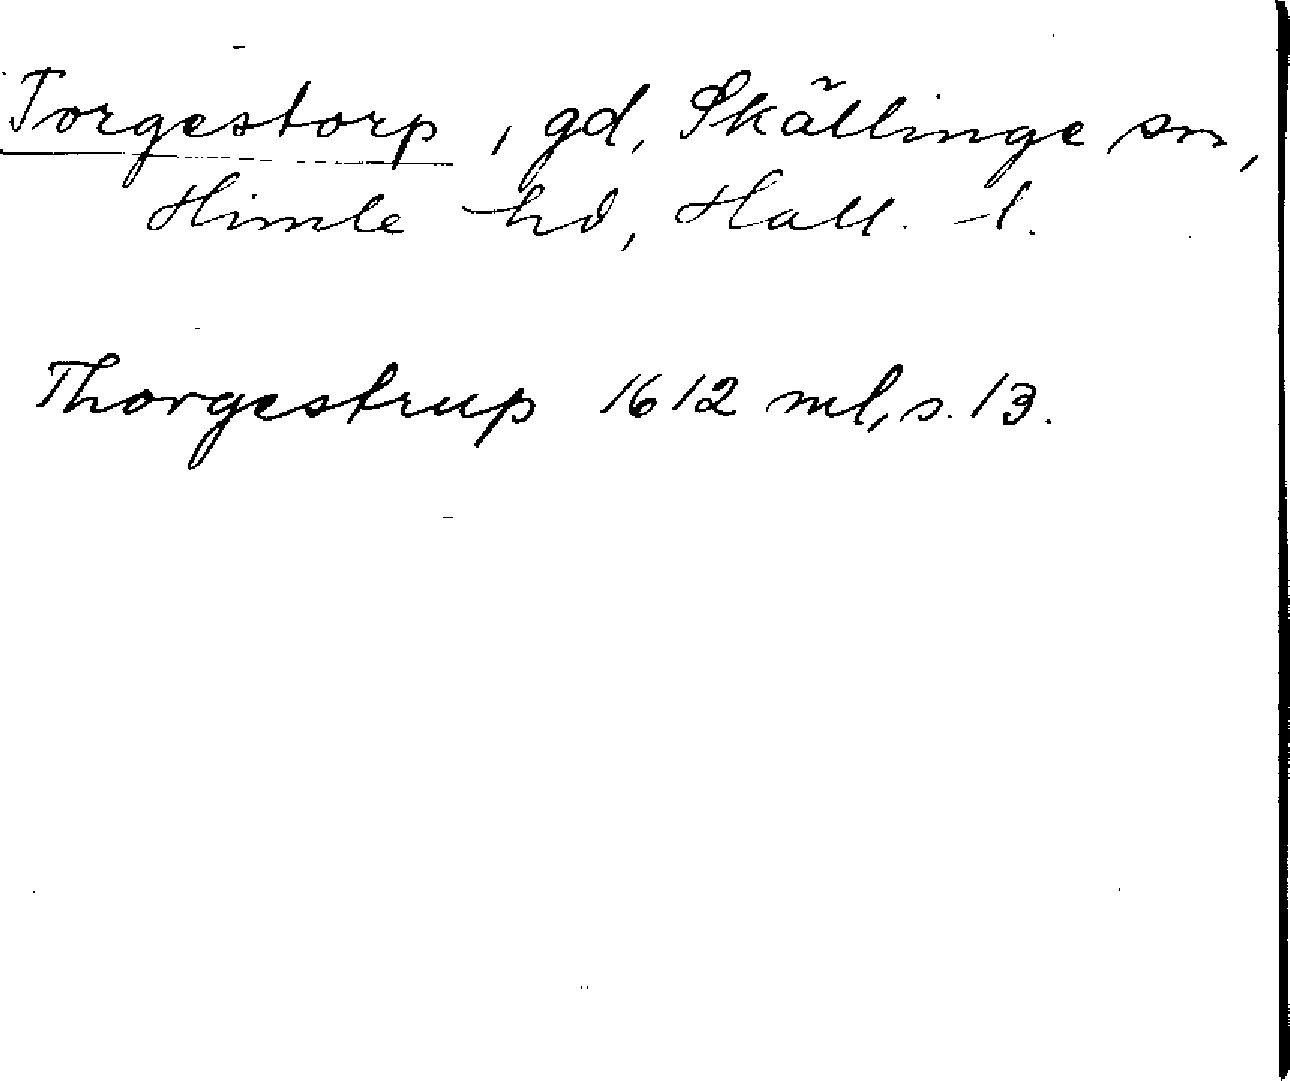 Torgestorp, gd, Skällinge sn,
Himle hd, Hall. l.
Thorgestrup 1612 ml, s. 13.